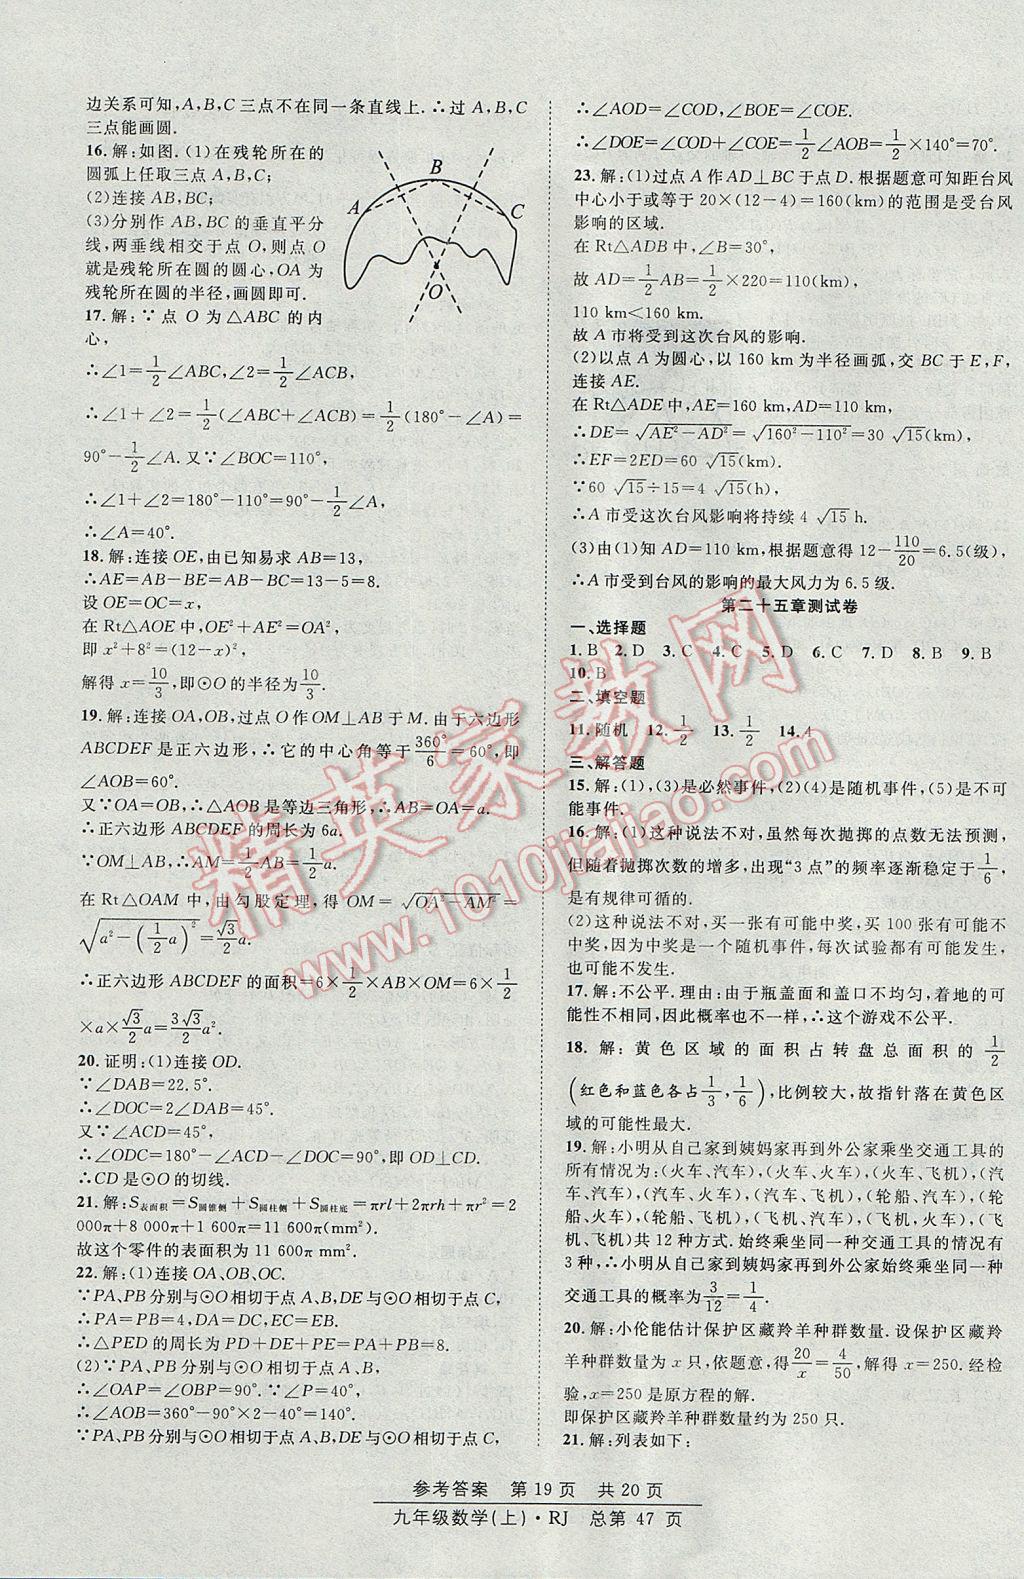 边关系可知,A,B,C 三点不在同一条直线上.∴过 A,B,C
三点能画圆.
16.解:如图.(1)在残轮所在的
圆弧上任取三点 A,B,C;
(2)连接 AB,BC;
(3)分别作 AB,BC 的垂直平分
线,两垂线交于点 O,则点 O
就是残轮所在圆的圆心,OA 为
残轮所在圆的半径,画圆即可.
A
B
C
O
17.解:∵点 O 为△ABC 的内
心,
∴∠1=1/2∠ABC,∠2=1/2∠ACB,
∴∠1+∠2=1/2(∠ABC+∠ACB)=1/2(180°-∠A)=
90°-1/2∠A.又∵∠BOC=110°,
∴∠1+∠2=180°-110°=90°-1/2∠A,
∴∠A=40°.
18.解:连接 OE,由已知易求 AB=13,
∴AE=AB-BE=AB-BC=13-5=8.
设 OE=OC=x,
在 Rt△AOE 中,OE²+AE²=OA²,
即 x²+8²=(12-x)²,
解得 x=10/3,即⊙O 的半径为10/3.
19.解:连接 OA,OB,过点 O 作 OM⊥AB 于 M.由于六边形
ABCDEF 是正六边形,∴它的中心角等于360°/6=60°,即
∠AOB=60°.
又∵OA=OB,∴△AOB 是等边三角形,∴AB=OA=a.
∴正六边形 ABCDEF 的周长为 6a.
∵OM⊥AB,∴AM=1/2AB=1/2a.
在 Rt△OAM 中,由勾股定理,得 OM=√(OA²-AM²)=
√(a²-(1/2a)²)=√3/2a.
∴正六边形 ABCDEF 的面积=6×1/2×AB×OM=6×1/2
×a×√3/2a=3√3/2a².
20.证明:(1)连接 OD.
∵∠DAB=22.5°.
∴∠DOC=2∠DAB=45°.
又∵∠ACD=45°.
∴∠ODC=180°-∠ACD-∠DOC=90°.
∴CD 是⊙O 的切线.
21.解:S表面积=S圆锥侧+S圆柱侧+S圆柱底=πrl+2πrh+πr²=2
000π+8 000π+1 600π=11 600π(mm²).
故这个零件的表面积为 11 600π mm².
22.解:(1)连接 OA、OB、OC.
∵PA、PB 分别与⊙O 相切于点 A、B,DE 与⊙O 相切于点 C,
∴PA=PB=4,DA=DC,EC=EB.
∴△PED 的周长为 PD+DE+PE=PA+PB=8.
(2)∵PA、PB 分别与⊙O 相切于点 A、B,
∴∠OAP=∠OBP=90°.∵∠P=40°,
∴∠AOB=360°-90°×2-40°=140°.
∵PA、PB 分别与⊙O 相切于点 A、B,DE 与⊙O 相切于点 C,
∴∠AOD=∠COD,∠BOE=∠COE.
∴∠DOE=∠COD+∠COE=1/2∠AOB=1/2×140°=70°.
23.解:(1)过点 A 作 AD⊥BC 于点 D.根据题意可知距台风
中心小于或等于 20×(12-4)=160(km)的范围是受台风
影响的区域.
在 Rt△ADB 中,∠B=30°,
故 AD=1/2AB=1/2×220=110(km),
110 km<160 km.
故 A 市将受到这次台风的影响.
(2)以点 A 为圆心,以 160 km 为半径画弧,交 BC 于 E,F,
连接 AE.
在 Rt△ADE 中,AE=160 km,AD=110 km,
∴DE=√(AE²-AD²)=√(160²-110²)=30 √15(km).
∴EF=2ED=60 √15(km).
∵60 √15÷15=4 √15(h),
∴A 市受这次台风影响将持续 4 √15 h.
(3)由(1)知 AD=110 km,根据题意得 12-110/20=6.5(级),
∴A 市受到台风的影响的最大风力为 6.5 级.
第二十五章测试卷
一、选择题
1.B 2.D 3.C 4.C 5.D 6.C 7.D 8.B 9.B
10.B
二、填空题
11.随机 12.1/2 13.1/2 14.4
三、解答题
15.解:(1),(3)是必然事件,(2)(4)是随机事件,(5)是不可
能事件.
16.解:(1)这种说法不对,虽然每次抛掷的点数无法预测,
但随着抛掷次数的增多,出现“3 点”的频率逐渐稳定于1/6,
是有规律可循的.
(2)这种说法不对,买一张有可能中奖,买 100 张有可能不
中奖,因为中奖是一个随机事件,每次试验都有可能发生,
也可能不发生.
17.解:不公平.理由:由于瓶盖面和盖口不均匀,着地的可
能性不相同,因此概率也不一样,∴这个游戏不公平.
18.解:黄色区域的面积占转盘总面积的1/2
(红色和蓝色各占1/3,1/6),比例较大,故指针落在黄色区
域的可能性最大.
19.解:小明从自己家到姨妈家再到外公家乘坐交通工具的
所有情况为:(火车、汽车),(火车、火车),(火车、飞机),(汽
车、汽车),(汽车、火车),(汽车、飞机),(轮船、汽车),(轮
船、火车),(轮船、飞机),(飞机、汽车),(飞机、火车),(飞
机、飞机)共 12 种方式.始终乘坐同一种交通工具的情况有
3 种,∴小明从自己家到姨妈家再到外公家始终乘坐同一种
交通工具的概率为3/12=1/4.
20.解:小伦能估计保护区藏羚羊种群数量.设保护区藏羚
羊种群数量为 x 只,依题意,得20/x=4/50,解得 x=250.经检
验,x=250 是原方程的解.
即保护区藏羚羊种群数量约为 250 只.
21.解:列表如下:
精英家教网
www.1010jiajiao.com
参考答案 第 19 页 共 20 页
九年级数学(上)·RJ 总第 47 页